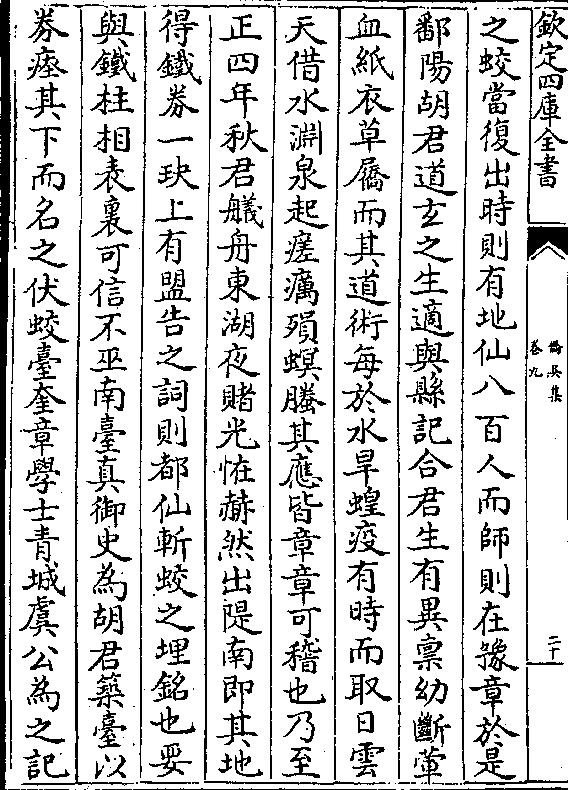 欽定四庫全書
僑吳集
卷九
二十
之蛟當復出時則有地仙八百人而師則在豫章於是
鄱陽胡君道玄之生適與縣記合君生有異稟幼斷葷
血紙衣草屩而其道術每於水旱蝗疫有時而取日雲
天借水淵泉起瘥癘殞螟螣其應皆章章可稽也乃至
正四年秋君艤舟東湖夜賭光怪赫然出隄南即其地
得鐵券一玦上有盟告之詞則都仙斬蛟之埋銘也要
與鐵柱相表裏可信不巫南臺真御史為胡君築臺以
券瘞其下而名之伏蛟臺奎章學士青城虞公為之記